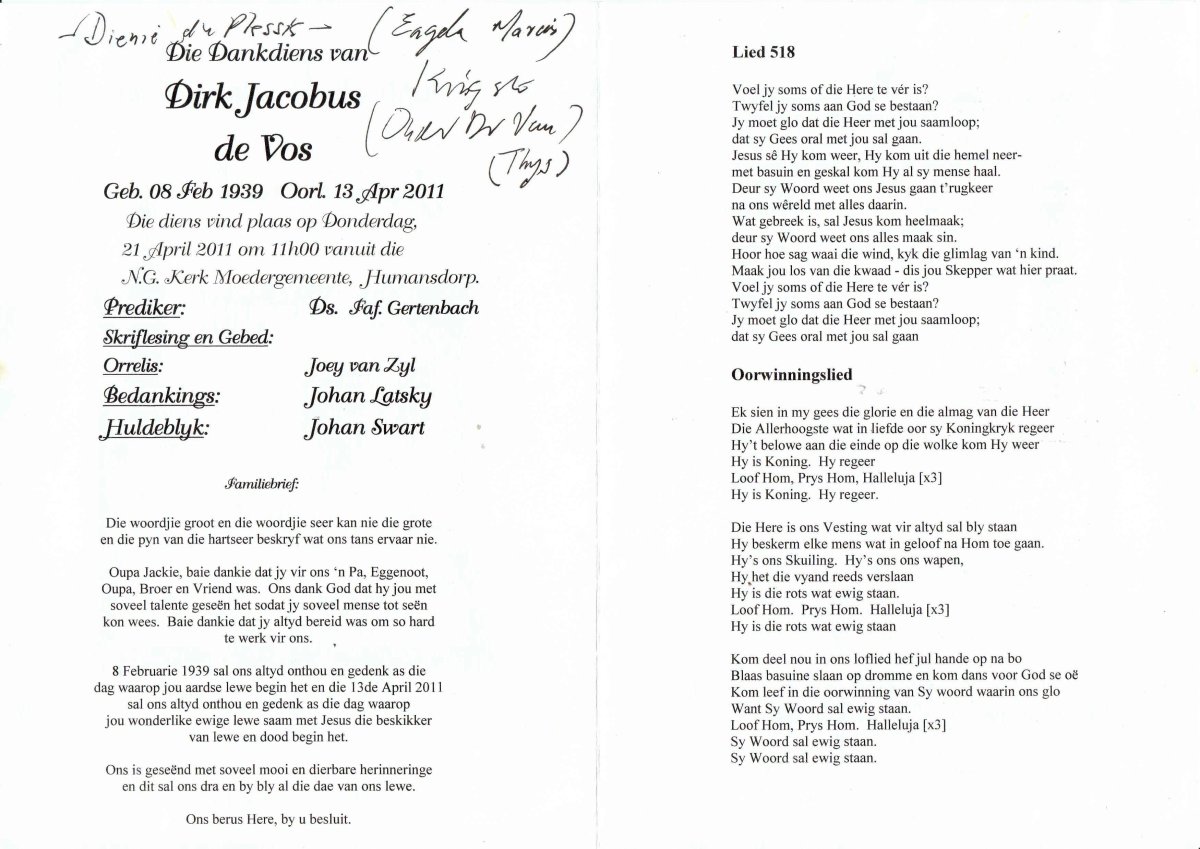 Dienie du Plessis
Die Dankdiens van
Dirk Jacobus
de Vos
(Thys)
Geb. 08 Feb 1939 Oorl. 13 Apr 2011
Die diens vind plaas op Donderdag,
21 April 2011 om 11h00 vanuit die
N.G. Kerk Moedergemeente, Humansdorp.
Prediker: Ds. Faf. Gertenbach
Skriflesing en Gebed:
Orrelis: Joey van Zyl
Bedankings: Johan Latsky
Huldeblyk: Johan Swart
Familiebrief:
Die woordjie groot en die woordjie seer kan nie die grote
en die pyn van die hartseer beskryf wat ons tans ervaar nie.
Oupa Jackie, baie dankie dat jy vir ons ‘n Pa, Eggenoot,
Oupa, Broer en Vriend was. Ons dank God dat hy jou met
soveel talente geseën het sodat jy soveel mense tot seën
kon wees. Baie dankie dat jy altyd bereid was om so hard
te werk vir ons.
8 Februarie 1939 sal ons altyd onthou en gedenk as die
dag waarop jou aardse lewe begin het en die 13de April 2011
sal ons altyd onthou en gedenk as die dag waarop
jou wonderlike ewige lewe saam met Jesus die beskikker
van lewe en dood begin het.
Ons is geseënd met soveel mooi en dierbare herinneringe
en dit sal ons dra en by bly al die dae van ons lewe.
Ons berus Here, by u besluit.
Lied 518
Voel jy soms of die Here te vér is?
Twyfel jy soms aan God se bestaan?
Jy moet glo dat die Heer met jou saamloop;
dat sy Gees oral met jou sal gaan.
Jesus sê Hy kom weer, Hy kom uit die hemel neer-
met basuin en geskal kom Hy al sy mense haal.
Deur sy Woord weet ons Jesus gaan t’rugkeer
na ons wêreld met alles daarin.
Wat gebreek is, sal Jesus kom heelmaak;
deur sy Woord weet ons alles maak sin.
Hoor hoe sag waai die wind, kyk die glimlag van ‘n kind.
Maak jou los van die kwaad - dis jou Skepper wat hier praat.
Voel jy soms of die Here te vér is?
Twyfel jy soms aan God se bestaan?
Jy moet glo dat die Heer met jou saamloop;
dat sy Gees oral met jou sal gaan
Oorwinningslied
Ek sien in my gees die glorie en die almag van die Heer
Die Allerhoogste wat in liefde oor sy Koningkryk regeer
Hy’t belowe aan die einde op die wolke kom Hy weer
Hy is Koning. Hy regeer
Loof Hom, Prys Hom, Halleluja [x3]
Hy is Koning. Hy regeer.
Die Here is ons Vesting wat vir altyd sal bly staan
Hy beskerm elke mens wat in geloof na Hom toe gaan.
Hy’s ons Skuiling. Hy’s ons ons wapen,
Hy het die vyand reeds verslaan
Hy is die rots wat ewig staan.
Loof Hom. Prys Hom. Halleluja [x3]
Hy is die rots wat ewig staan
Kom deel nou in ons loflied hef jul hande op na bo
Blaas basuine slaan op dromme en kom dans voor God se oë
Kom leef in die oorwinning van Sy woord waarin ons glo
Want Sy Woord sal ewig staan.
Loof Hom, Prys Hom. Halleluja [x3]
Sy Woord sal ewig staan.
Sy Woord sal ewig staan.